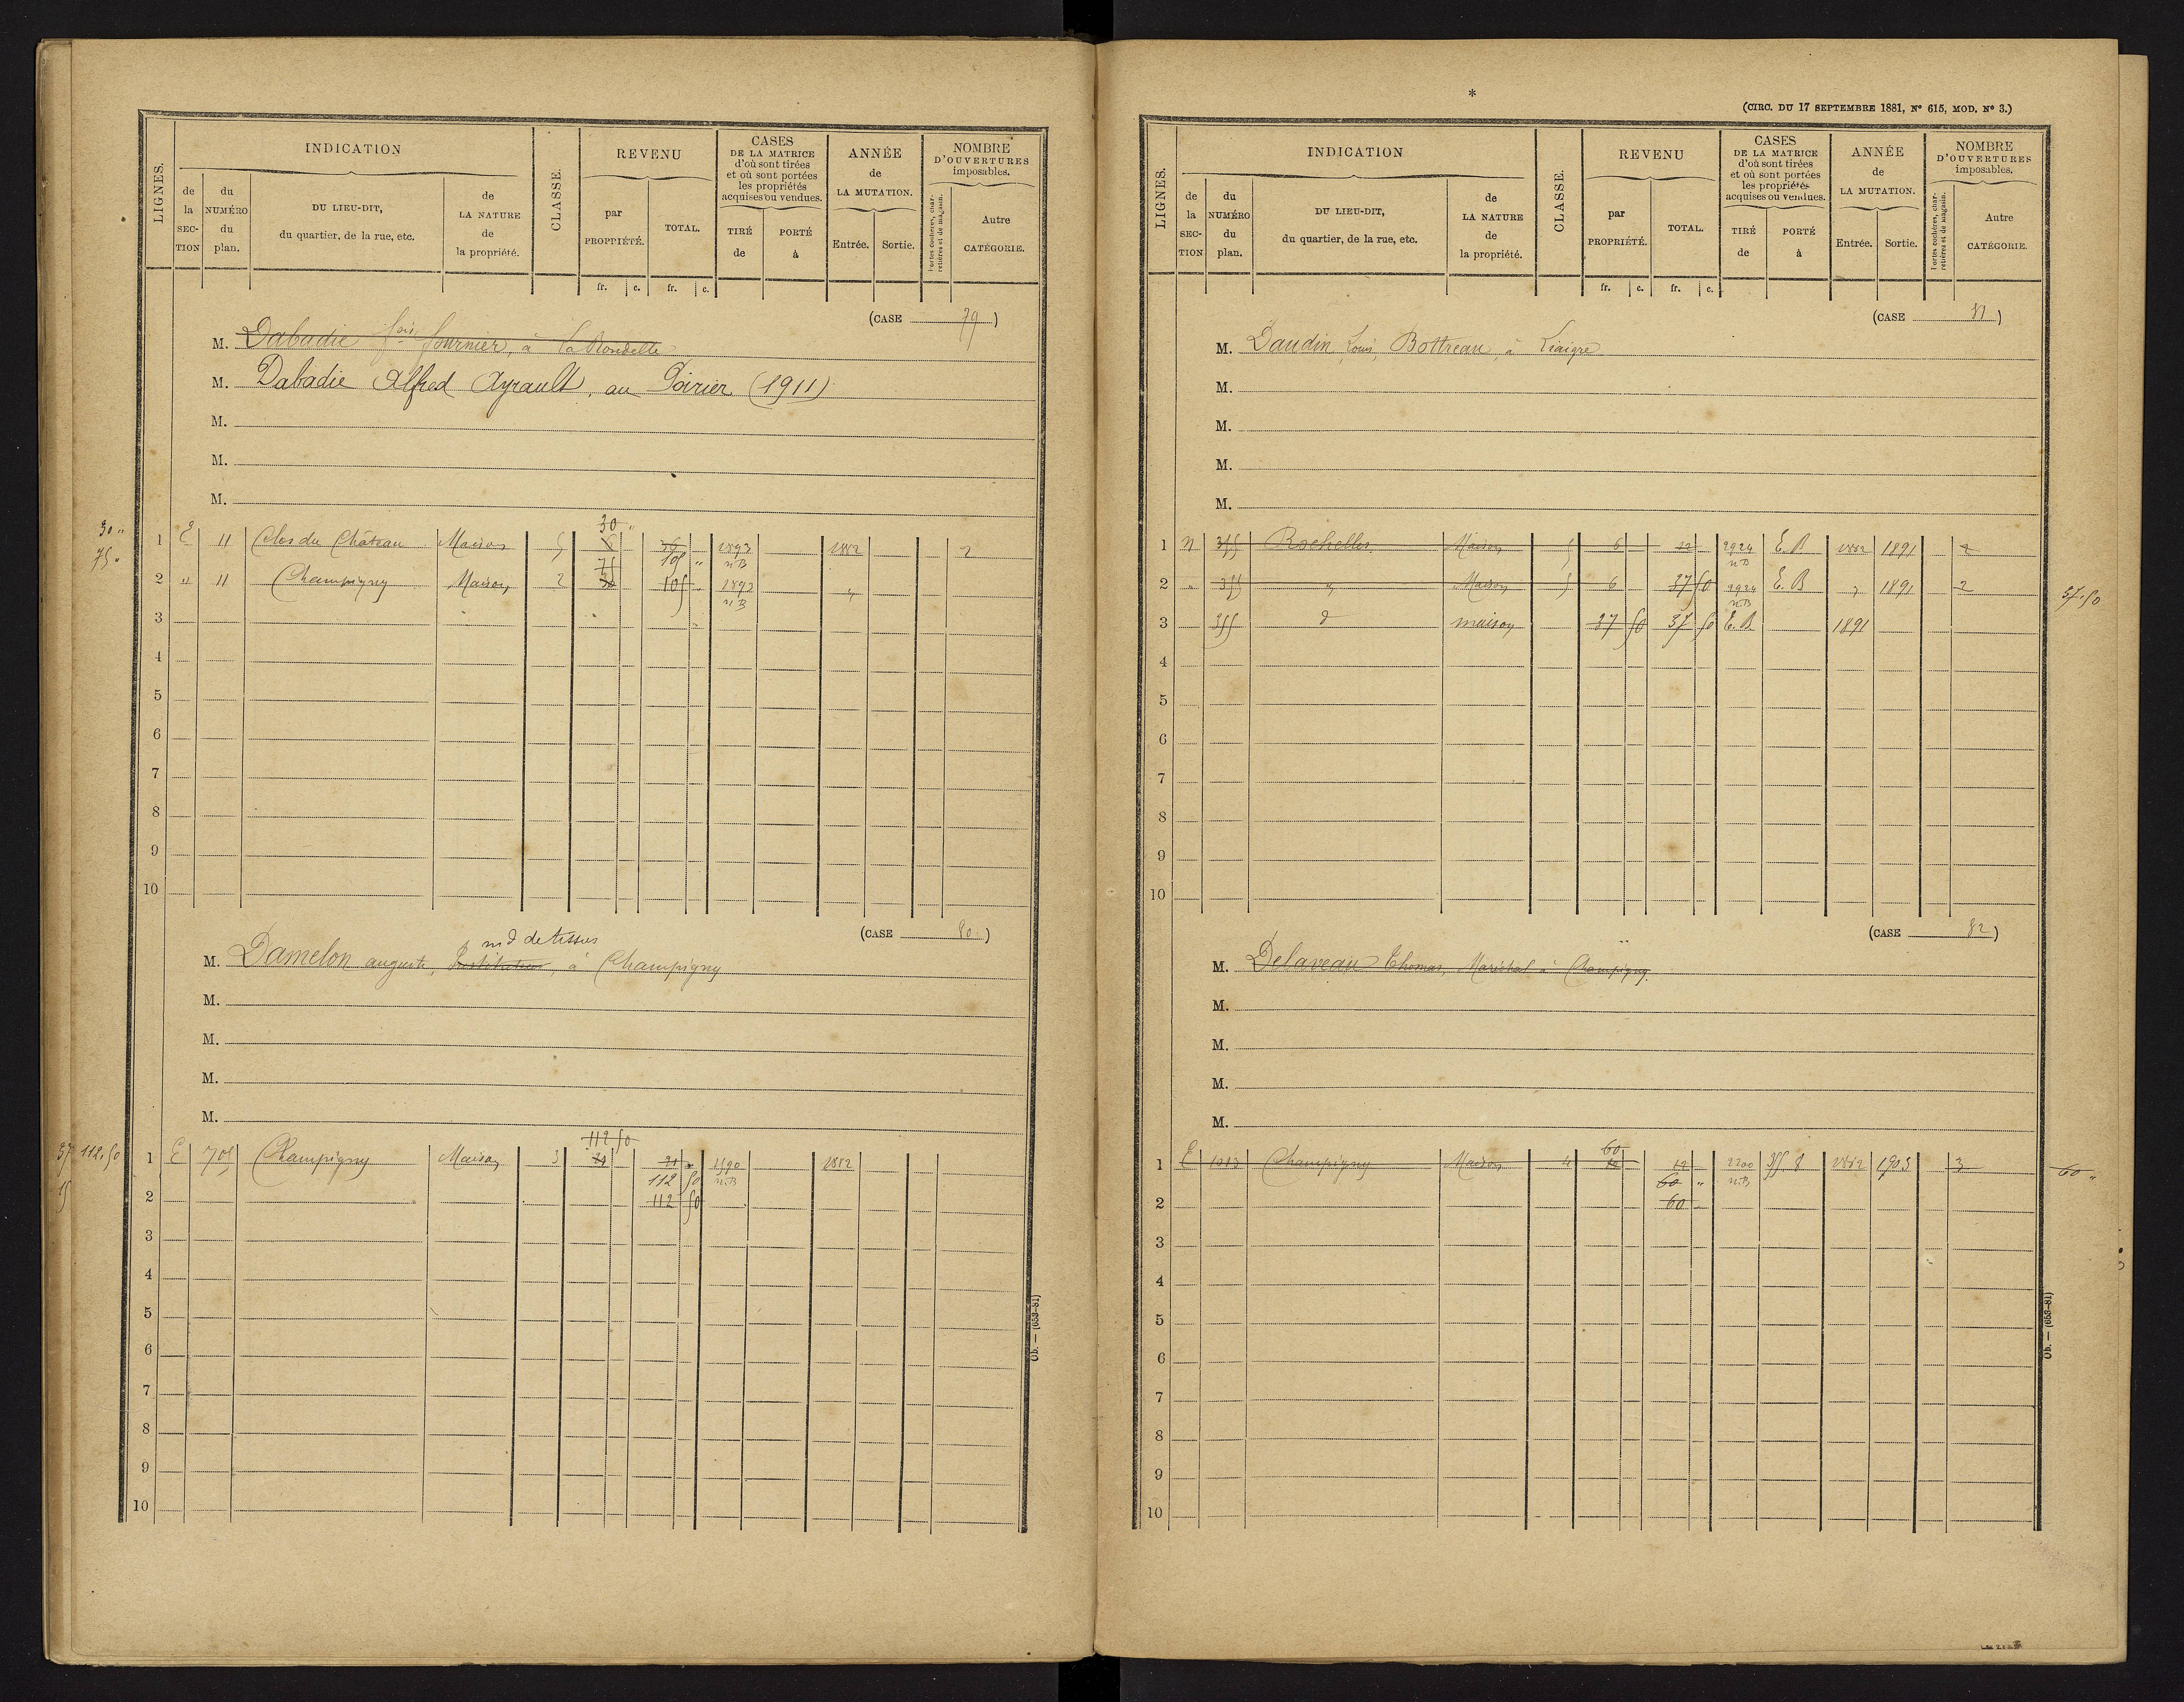 LIGNES.
INDICATION
de la SECTION
du NUMÉRO du plan.
DU LIEU-DIT, du quartier, de la rue, etc.
de LA NATURE de la propriété.
CLASSE.
REVENU
par PROPRIÉTÉ.
TOTAL.
fr. c. fr. c.
CASES DE LA MATRICE d'où sont tirées et où sont portées les propriétés acquises ou vendues.
TIRÉ de
PORTÉ à
ANNÉE de LA MUTATION.
Entrée. Sortie.
NOMBRE D'OUVERTURES imposables.
Portes cochères, charretières et de magasin.
Autre CATÉGORIE.
(CASE 79)
M. Dabadie fois fournier, à la
M. Dabadie Alfred Ayrault, au Poirier (1911)
M.
M.
M.
30 "
75 "
30 "
1 E 11 Clos du Château Maison 5 6 36 1893 1882 2
75 105 " n B
2 " 11 Champigny Maison 2 30 105 1893 "
n B
3
4
5
6
7
8
9
10
(CASE 80)
md de tissus
M. Damelon auguste, Instituteur, à Champigny
M.
M.
M.
M.
112 50
37 112,50 1 E 705 Champigny Maison 3 21 21 1590 1882
15 112 50 n.B
2 112 50
3
4
5
6
7
8
9
10
Ob. — (653-81)
*
(CIRC. DU 17 SEPTEMBRE 1881, N° 615, MOD. N° 3.)
LIGNES.
INDICATION
de la SECTION
du NUMÉRO du plan.
DU LIEU-DIT, du quartier, de la rue, etc.
de LA NATURE de la propriété.
CLASSE.
REVENU
par PROPRIÉTÉ.
TOTAL.
fr. c. fr. c.
CASES DE LA MATRICE d'où sont tirées et où sont portées les propriétés acquises ou vendues.
TIRÉ de
PORTÉ à
ANNÉE de LA MUTATION.
Entrée. Sortie.
NOMBRE D'OUVERTURES imposables.
Portes cochères, charretières et de magasin.
Autre CATÉGORIE.
(CASE 81)
M. Daudin Louis, Bottreau, à Liaigre
M.
M.
M.
M.
1 N 355 Rochelles Maison 5 6 12 2924 E. B 1882 1891 2
n B
2 " 355 " Maison 5 6 37 50 2924 E. B " 1891 2
n.B
37.50
3 355 d maison 37 50 37 50 E. B 1891
4
5
6
7
8
9
10
(CASE 82)
M. Delaveau Thomas, Maréchal à Champigny.
M.
M.
M.
M.
60
1 E 1013 Champigny Maison 4 12 2200 355 8 1882 1905 3 60 "
60 " n.B
2 60
3
4
5
6
7
8
9
10
Ob. — (653-81)